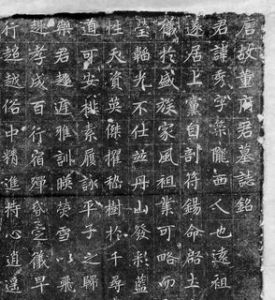 君故董府君墓誌銘
君諱字榮隴西人也遠祖
遂居上黨自剖符錫命啟土
儀於盛族家風祖業可略而
瑩輪光不仕並丹山發彩藍
性天資英傑擢嵇樹於千尋
道可安排素履詠平子之歸
樂君趨庭雅訓映螢雪以飛
述孝成百行宿殫早
行超越俗中精進持心逍遙